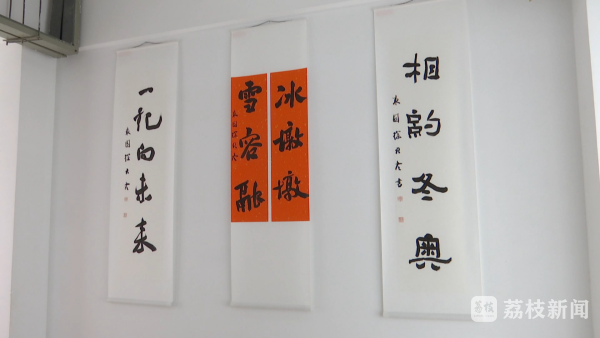 一起向未来
冰墩墩
雪容融
相約冬奥
荔枝新闻